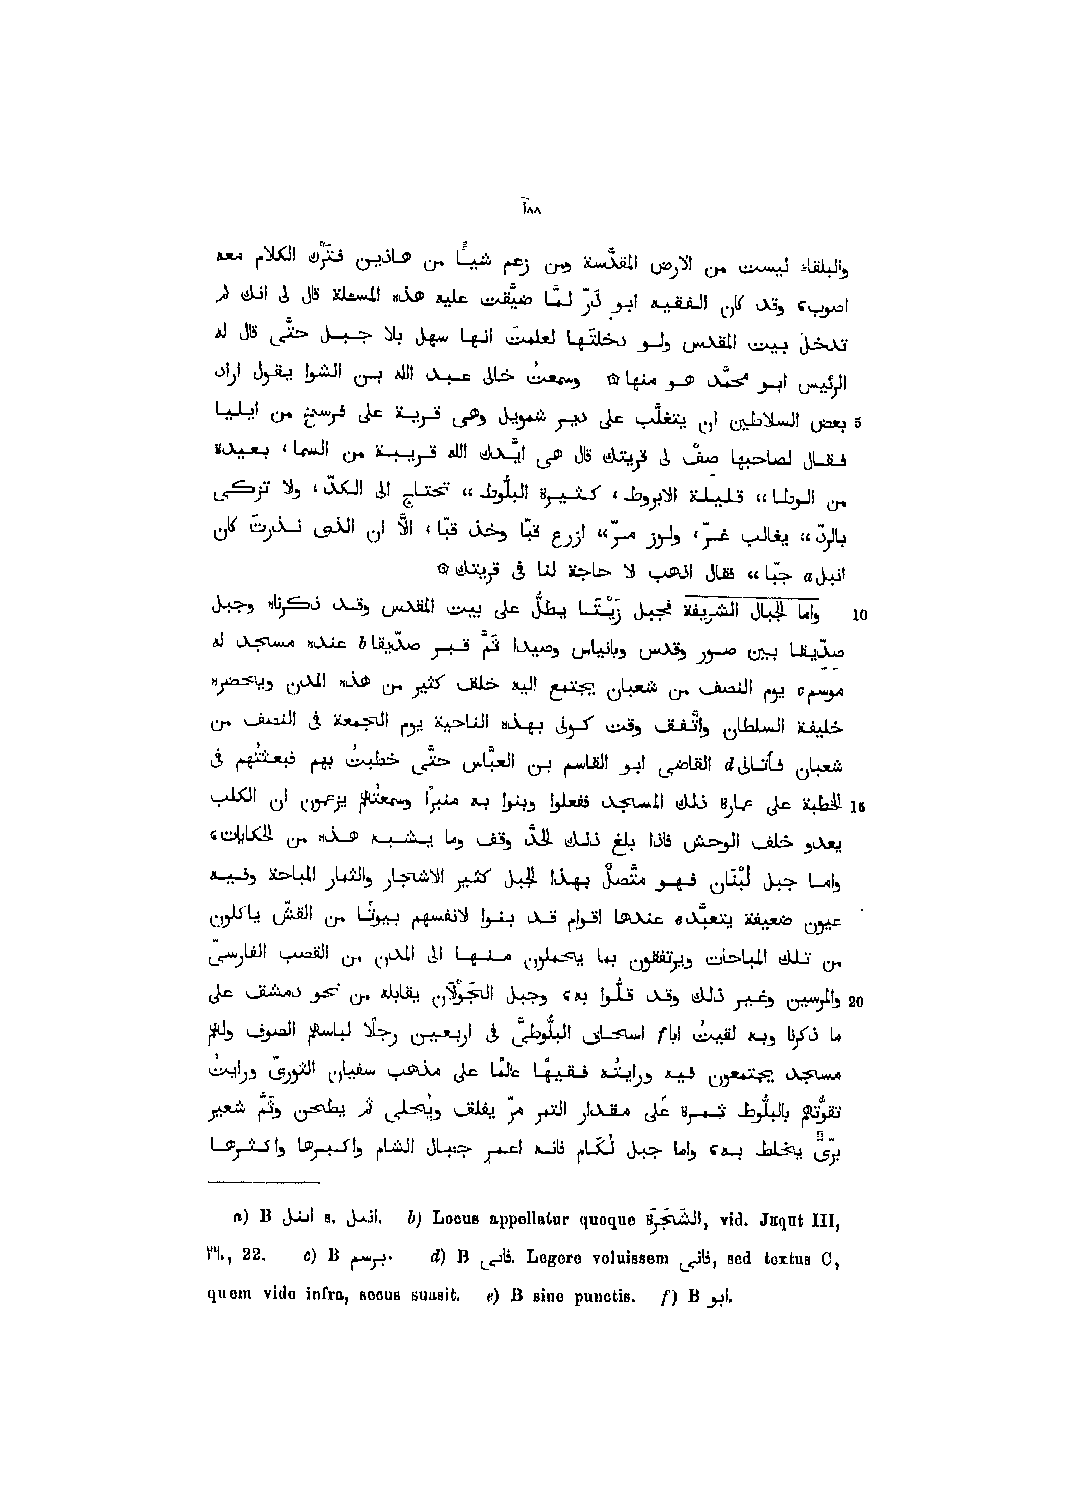 ١٨٨
والبلقاء ليست من الارض المقدّسة ومن زعم شيئًا من هاذين فتَرْك الكلام معه
اصوب، وقد كان الفقيه ابو ذَرّ لمّا ضيّقت عليه هذه المسئلة قال لى انك لم
تدخل بيت المقدس ولو دخلتَها لعلمتَ انها سهل بلا جبل حتّى قال له
الرئيس ابو محمّد هو منها ۞ وسمعتُ خالى عبد الله بن الشوا يقول اراد
5 بعض السلاطين ان يتغلّب على دير شمويل وهى قرية على فرسخ من ايليا
فقال لصاحبها صفْ لى قريتك قال هى ايّدك الله قريبة من السما، بعيدة
من الوطا،، قليلة الابروط، كثيرة البلّوط،، تحتاج الى الكدّ، ولا تزكى
بالردّ،، يغالب غرّ، ولوز مرّ،، ازرع قبًّا وخذ قبًّا، الّا ان الذى نذرتَ كان
انبل a حبًّا،، فقال اذهب لا حاجة لنا فى قريتك ۞
10 واما الجبال الشريفة فجبل زَيْتَا يطلّ على بيت المقدس وقد ذكرناه وجبل
صدّيقا بين صور وقدس وبانياس وصيدا ثَمَّ قبر صدّيقا b عنده مسجد له
موسم c يوم النصف من شعبان يجتمع اليه خلف كثير من هذه المدن ويحضره
خليفة السلطان واتّفق وقت كونى بهذه الناحية يوم الجمعة فى النصف من
شعبان فأتانى d القاضى ابو القاسم بن العبّاس حتّى خطبتُ بهم فبعثتُهم فى
15 الخطبة على عمارة ذلك المسجد ففعلوا وبنوا به منبرًا وسمعتُهم يزعمون ان الكلب
يعدو خلف الوحش فاذا بلغ ذلك الحدّ وقف وما يشبه هذه من الحكايات،
واما جبل لُبْنَان فهو متّصلٌ بهذا الجبل كثير الاشجار والثمار المباحة وفيه
عيون ضعيفة يتعبّد e عندها اقوام قد بنوا لانفسهم بيوتًا من القشّ ياكلون
من تلك المباحات ويرتفقون بما يحملون منها الى المدن من القصب الفارسىّ
20 والمرسين وغير ذلك وقد قلّوا به، وجبل الجَوْلَان يقابله من نحو دمشق على
ما ذكرنا وبه لقيتُ ابا f اسحاق البلّوطىّ فى اربعين رجلًا لباسهم الصوف ولهم
مسجد يجتمعون فيه ورايتُه فقيهًا عالمًا على مذهب سفيان الثورىّ ورايتُ
تقوُّتهم بالبلّوط ثمرة على مقدار التمر مرّ يفلق ويُحلى ثم يطحن وثَمَّ شعير
برّىّ يخلط به، واما جبل لُكَام فانه اعمر جبال الشام واكبرها واكثرها
a) B انىل s. انىل. b) Locus appellatur quoque الشَجَرَة, vid. Jaqut III,
٣٦٠, 22. c) B برسم. d) B فاتى. Legere voluissem فاتى, sed textus C,
quem vide infra, secus suasit. e) B sine punctis. f) B ابو.